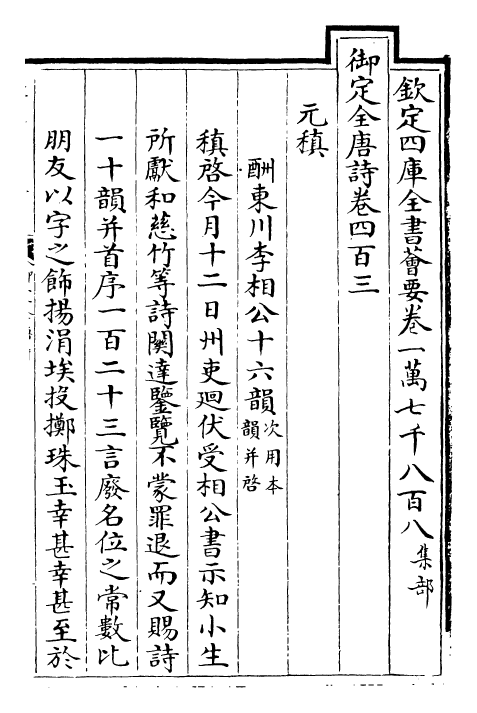 欽定四庫全書薈要卷一萬七千八百八集部
御定全唐詩卷四百三
元稹
酬東川李相公十六韻次用本韻并啓
稹啓今月十二日州吏迴伏受相公書示知小生
所獻和慈竹等詩闕達鑒覽不蒙罪退而又賜詩
一十韻并首序一百二十三言廢名位之常數比
朋友以字之飾揚涓埃投擲珠玉幸甚幸甚至於